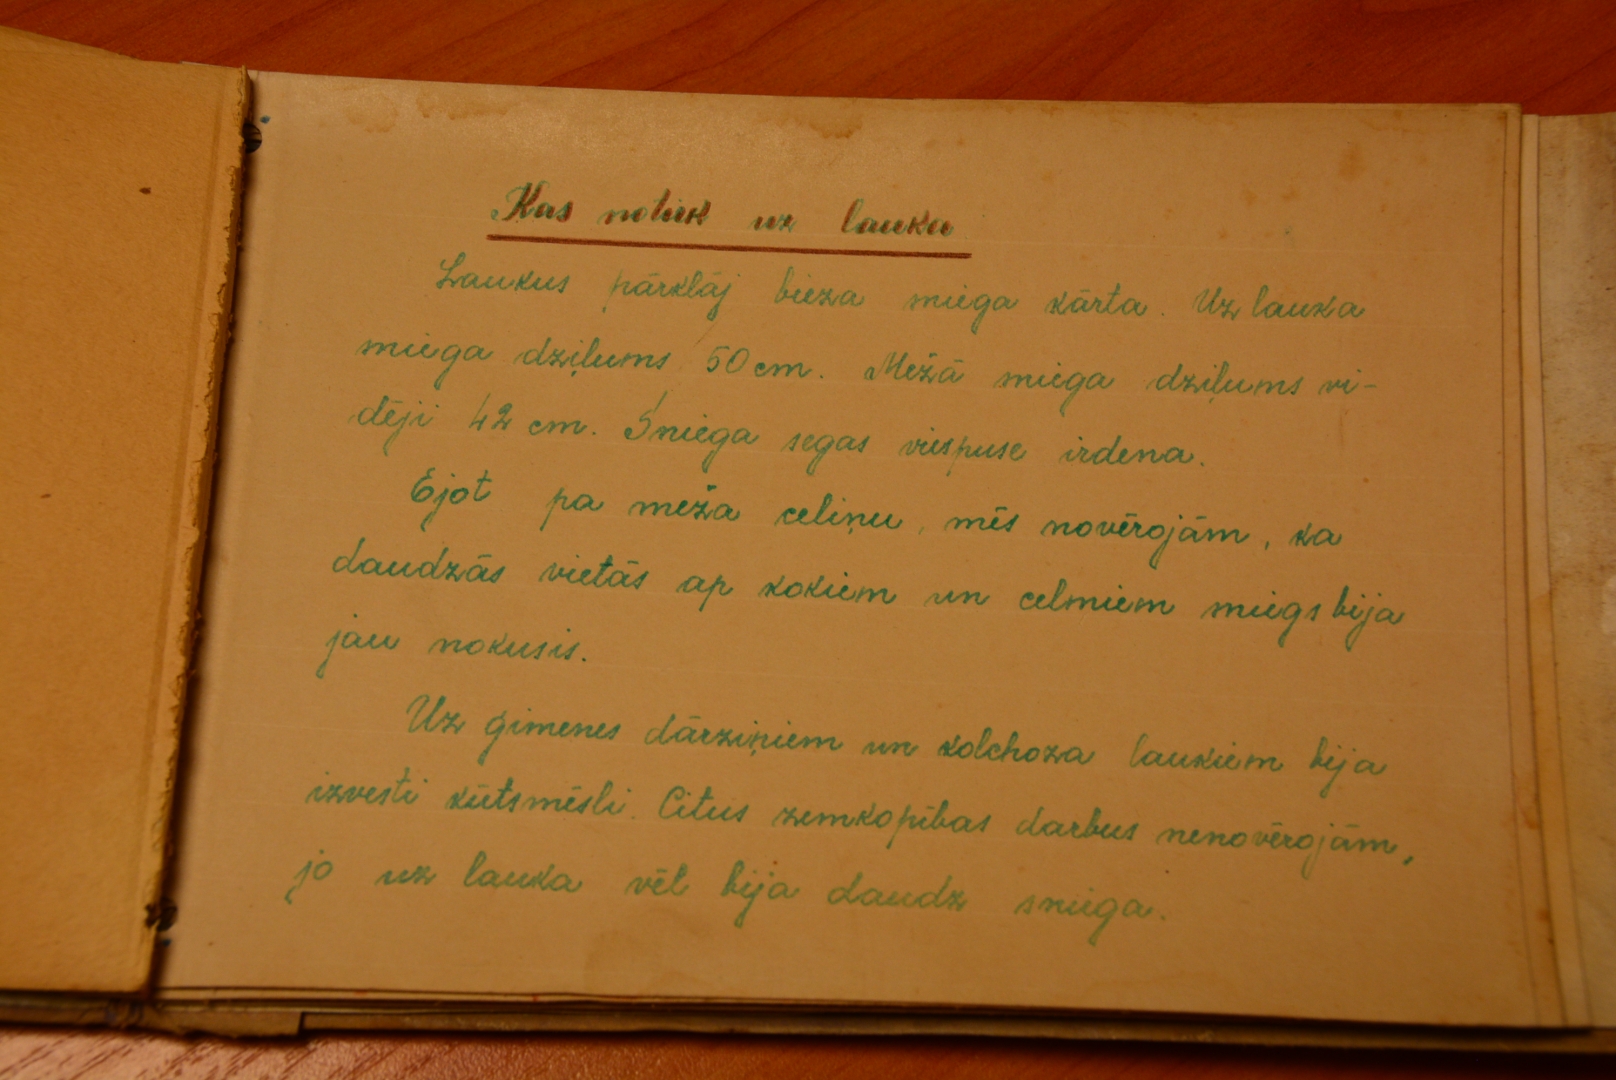 Kas notiek uz lauka
Laukus pārklāj bieza sniega kārta. Uz lauka
sniega dziļums 50 cm. Mežā sniega dziļums vi-
dēji 42 cm. Sniega segas virspuse irdena.
Ejot pa meža celiņu, mēs novērojām, ka
daudzās vietās ap kokiem un celmiem sniegs bija
jau nokusis.
Uz ģimenes dārziņiem un kolchoza laukiem bija
izvesti kūtsmēsli. Citus zemkopības darbus nenovērojām,
jo uz lauka vēl bija daudz sniega.